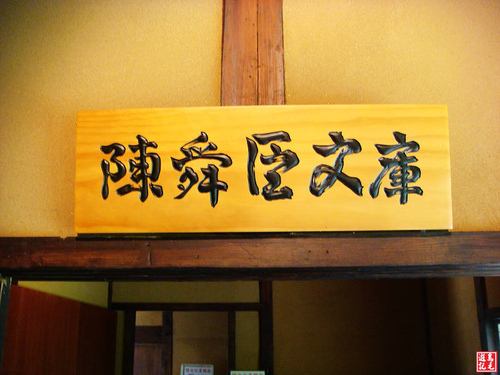 陳舜臣文庫